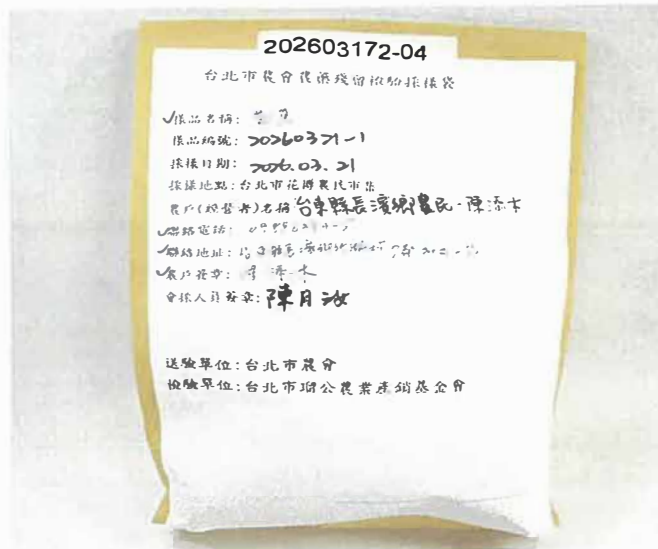 202603172-04
台北市農會農藥殘留檢驗採樣袋
✓樣品名稱:
樣品編號: 20260321-1
採樣日期: 2026.03.21
採樣地點: 台北市花博農民市集
農戶(經營者)名稱 台東縣長濱鄉農民-陳添木
✓聯絡電話:
✓聯絡地址:
✓農戶簽章:
會採人員簽章: 陳月汝
送驗單位: 台北市農會
檢驗單位: 台北市瑠公農業產銷基金會